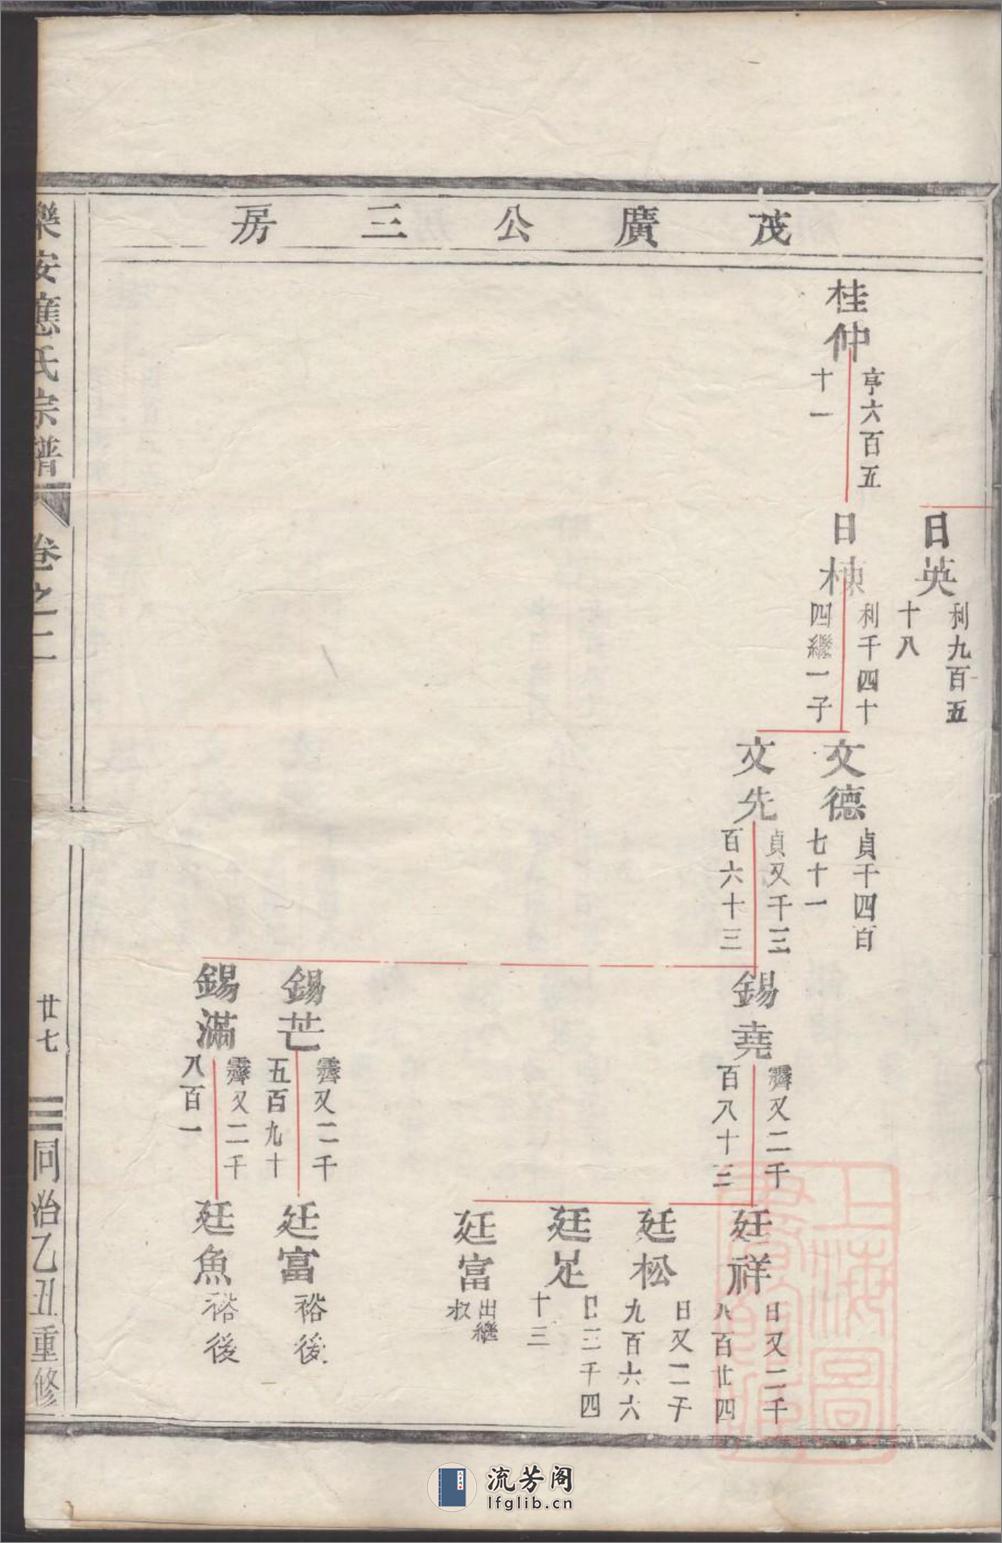 茂廣公三房
桂仲
亨六百五
十一
日英
利九百五
十八
日棟
利千四十
四繼一子
文德
貞千四百
七十一
文先
貞又千三
百六十三
錫堯
霽又二千
百八十三
錫芒
霽又二千
五百九十
錫滿
霽又二千
八百一
廷祥
日又二千
八百廿四
廷松
日又二千
九百六六
廷足
日三千四
十三
廷富
出繼
叔
廷富
裕後
廷魚
裕後
樂安應氏宗譜
卷之二
廿七
同治乙丑重修
上海圖
流芳阁
lfglib.cn